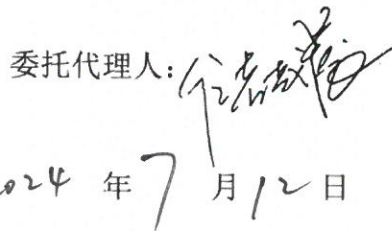 委托代理人:
2024 年 7 月 12 日